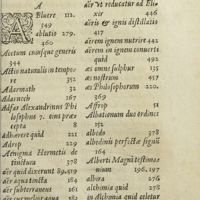 A
Bluere 112.
349
ablutio 279.
460
Acetum cuiusque generis
344
Actio naturalis in tempore
352
Adarmath 32
Adarneth 163
Adfar Alexandrinus Philosophus 7. eius præcepta
adhærere quid 221
Adrop 229
Aenigma Hermetis de
tinctura 378
aër quid dixerunt 89.419
aër aqua tincta 184
aër subterraneus 161
aër vt reducatur ad Elixir 446
aëris & ignis distillatio
417
aërem ignem nutrire 442
aërem in ignem conuerti
quid 492
æs omne sulphur 435
æs nostrum 457
æs Philosophorum 220.
370
Affrop 51
Albationum duo ordines
152
albedo 378
albedinis perfectæ signũ
164
Alberti Magni testimonium 196, 197
albira 276
alchimia quid 278
alchimia quid celetur